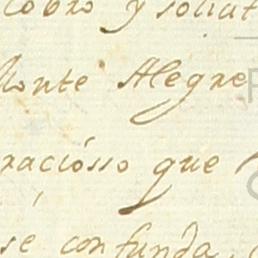 cobro y solicit
Monte Alegre
raciósso que
se confunda,